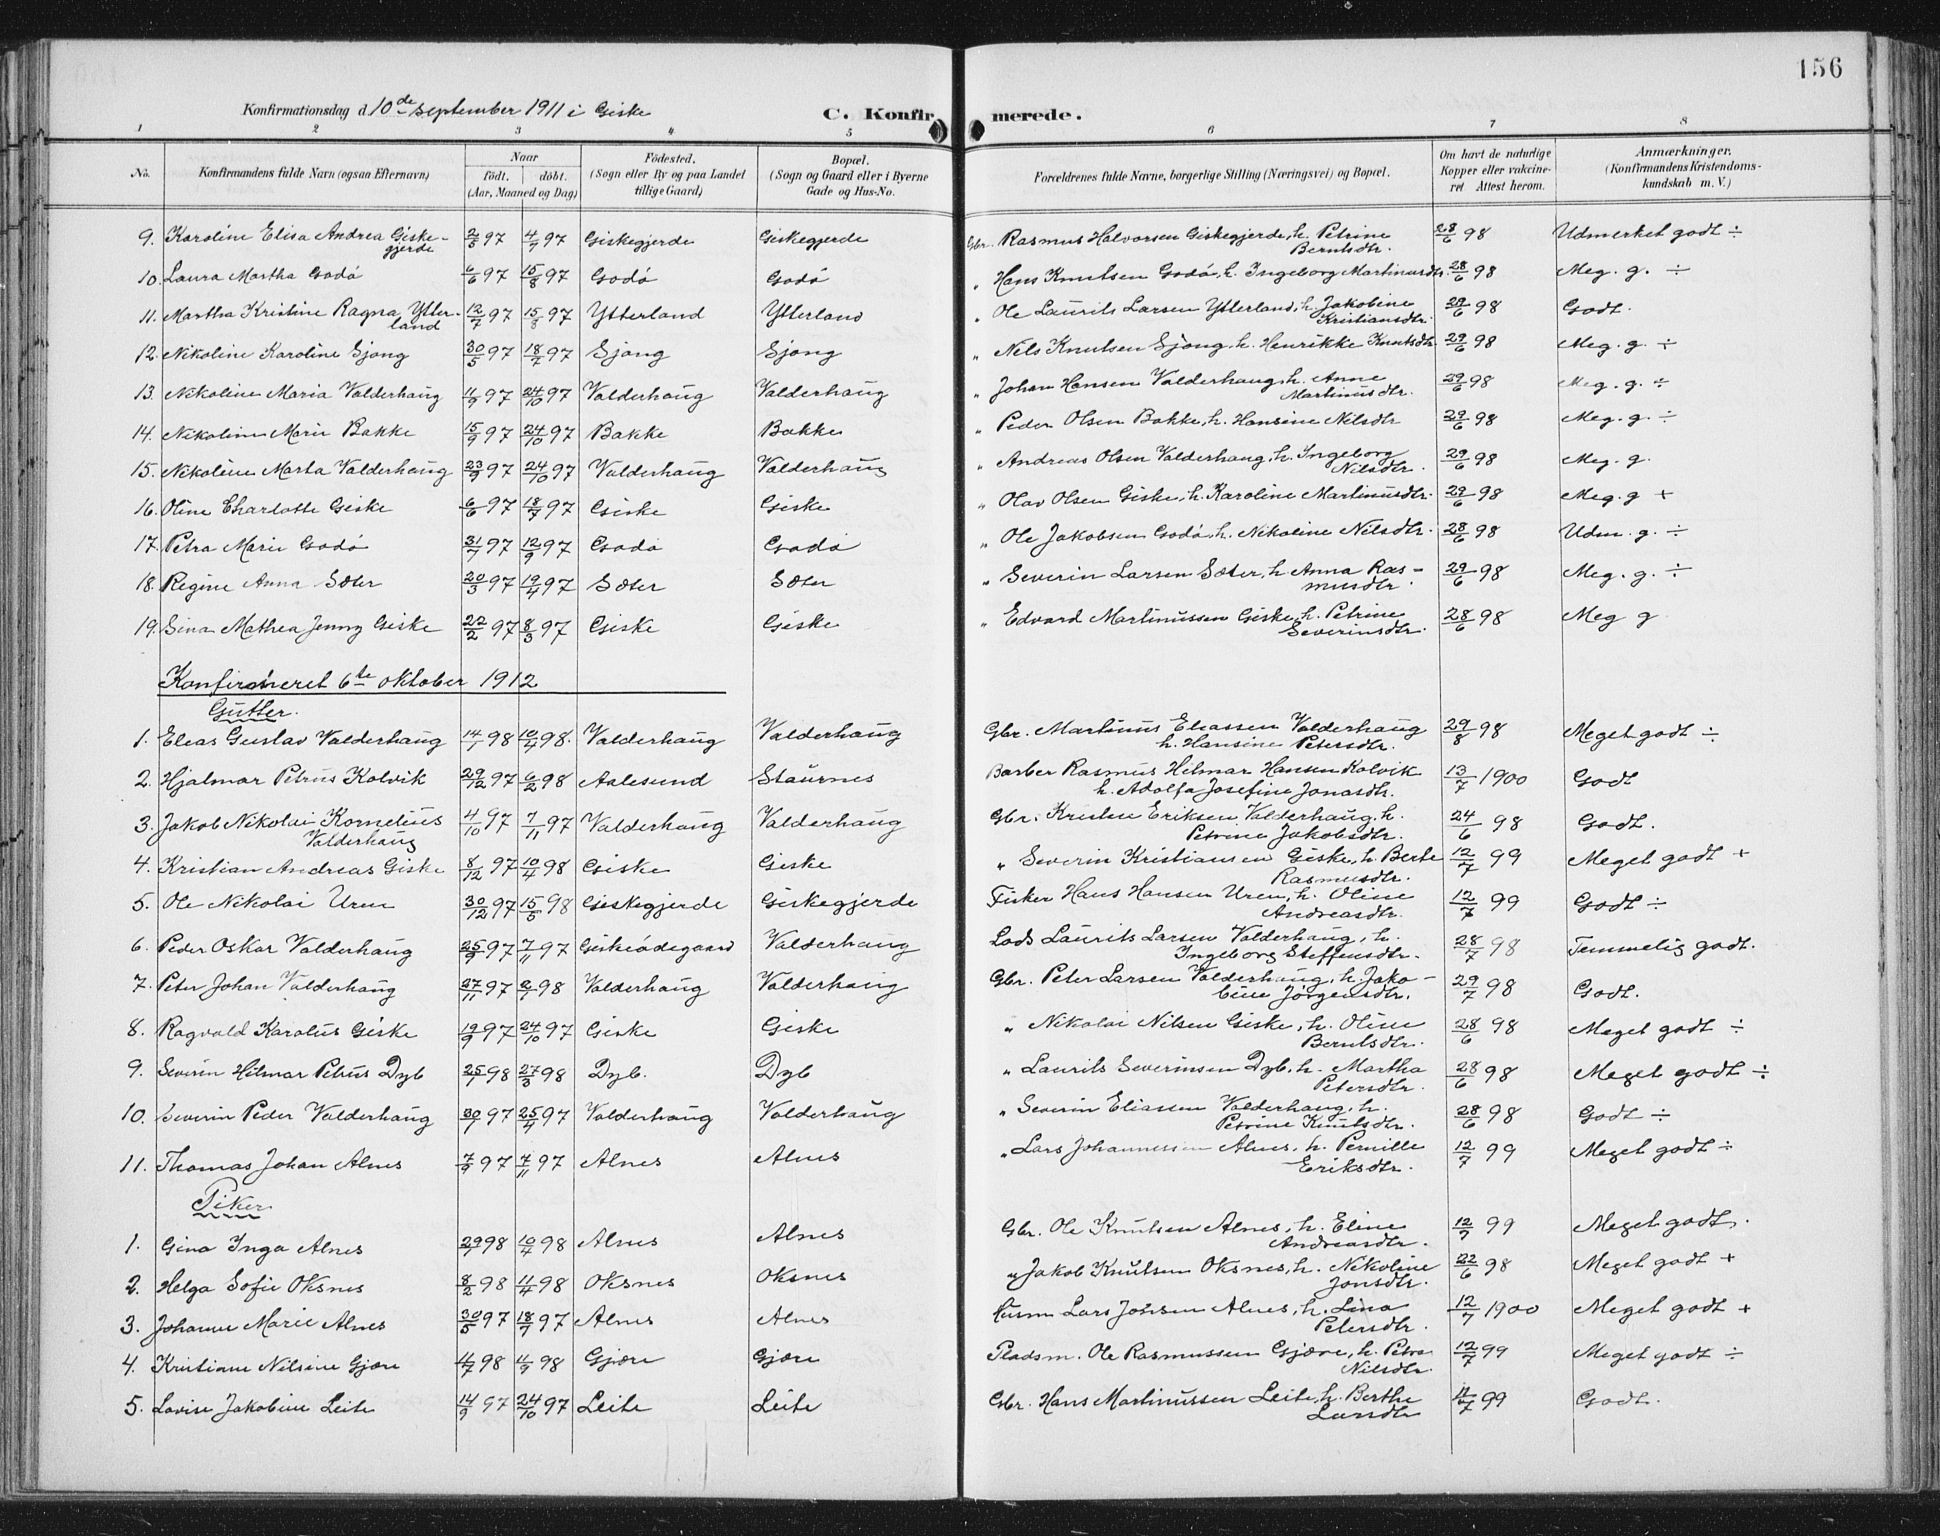 156
Konfirmationsdag d. 10de september 1911 i Giske C. Konfirmerede.
1 2 3 4 5 6 7 8
No. Konfirmandens fulde Navn (ogsaa Efternavn) Naar født. døbt. (Aar, Maaned og Dag) Fødested. (Sogn eller By og paa Landet tillige Gaard) Bopæl. (Sogn og Gaard eller i Byerne Gade og Hus-No. Forældrenes fulde Navne, borgerlige Stilling (Næringsvei) og Bopæl. Om havt de naturlige Kopper eller vakcineret. Attest herom. Anmærkninger. (Konfirmandens Kristendomskundskab m. V.)
9. Karoline Elisa Andrea Giskegjerde 2/5 97 4/7 97 Giskegjerde Giskegjerde Gbr. Rasmus Halvorsen Giskegjerde, h. Petrine Berntsdtr. 28/6 98 Udmerket godt ÷
10. Laura Martha Godø 6/6 97 15/8 97 Godø Godø " Hans Knutsen Godø, h. Ingeborg Martinusdtr. 28/6 98 Meg. g. ÷
11. Martha Kristine Ragna Ytterland 12/7 97 15/8 97 Ytterland Ytterland " Ole Laurits Larsen Ytterland, h. Jakobine Kristiansdtr. 29/6 98 Godt.
12. Nikoline Karoline Sjong 30/5 97 18/7 97 Sjong Sjong " Nels Knutsen Sjong, h. Henrikke Knutsdtr. 29/6 98 Meg. g. ÷
13. Nikoline Maria Valderhaug 11/9 97 24/10 97 Valderhaug Valderhaug " Johan Hansen Valderhaug, h. Anne Martinusdtr. 29/6 98 Meg. g. ÷
14. Nikoline Marie Bakke 15/9 97 24/10 97 Bakke Bakke " Peder Olsen Bakke, h. Hansine Nilsdtr 29/6 98 Meg. g. ÷
15. Nikoline Marta Valderhaug 23/9 97 24/10 97 Valderhaug Valderhaug " Andreas Olsen Valderhaug, h. Ingeborg Nilsdtr. 29/6 98 Meg. g.
16. Oline Charlotte Giske 6/6 97 18/7 97 Giske Giske " Olav Olsen Giske, h. Karoline Martinusdtr. 29/6 98 Meg. g +
17. Petra Marie Godø 31/7 97 12/9 97 Godø Godø " Ole Jakobsen Godø, h. Nikoline Nilsdtr. 28/6 98 Udm. g. ÷
18. Regine Anna Sæter 20/3 97 19/4 97 Sæter Sæter " Severin Larsen Sæter, h Anna Rasmusdtr. 29/6 98 Meg. g. ÷
19. Sina Mathea Jenny Giske 22/2 97 8/3 97 Giske Giske " Edvard Martinussen Giske, h. Petrine Severinsdtr. 28/6 98 Meg g
Konfirmeret 6te oktober 1912
Gutter.
1. Elias Gustav Valderhaug 14/1 98 10/4 98. Valderhaug Valderhaug Gbr. Martinus Eliassen Valderhaug h. Hansine Petersdtr. 29/8 98 Meget godt ÷
2. Hjalmar Petrus Kolvik 29/12 97 6/2 98 Aalesund Staurnes Barber Rasmus Hilmar Hansen Kolvik h. Adolfa Josefine Jonasdtr. 13/7 1900 Godt
3. Jakob Nikolai Kornelius Valderhaug 4/10 97 7/11 97 Valderhaug Valderhaug Gbr. Kristen Eriksen Valderhaug, h. Petrine Jakobsdtr. 24/6 98 Godt.
4. Kristian Andreas Giske 8/12 97 10/4 98 Giske Giske " Severin Kristiansen Giske, h. Berte Rasmusdtr. 12/7 99 Meget godt +
5. Ole Nikolai Uren 30/12 97 15/5 98 Giskegjerde Giskegjerde Fisker Hans Hansen Uren, h. Oline Andreasdtr. 12/7 99 Godt ÷
6. Peder Oskar Valderhaug 25/9 97 7/11 97 Giskeødegaard Valderhaug Lods Laurits Larsen Valderhaug, h. Ingeborg Steffensdtr. 28/7 98 Temmelig godt.
7. Peter Johan Valderhaug 27/11 97 2/1 98 Valderhaug Valderhaug Gbr. Peter Larsen Valderhaug, h. Jakobine Jørgensdtr. 29/7 98 Godt.
8. Ragvald Karolus Giske 19/9 97 24/10 97 Giske Giske " Nikolai Nilsen Giske, h. Oline Berntsdtr. 28/6 98 Meget godt ÷
9. Severin Hilmar Petrus Dyb 25/1 98 27/3 98 Dyb. Dyb " Laurits Severinsen Dyb, h. Martha Petersdtr. 28/6 98 Meget godt ÷
10. Severin Peder Valderhaug 30/1 97 25/4 97 Valderhaug Valderhaug " Severin Eliassen Valderhaug, h. Petrine Knutsdtr. 28/6 98 Godt ÷
11. Thomas Johan Alnes 7/9 97 7/11 97 Alnes Alnes " Lars Johannessen Alnes, h. Pernille Eriksdtr. 12/7 99 Meget godt ÷
Piker
1. Gina Inga Alnes 29/1 98 10/4 98 Alnes Alnes Gbr. Ole Knutsen Alnes, h. Eline Andreasdtr. 12/7 99 Meget godt.
2. Helga Sofie Oksnes 8/2 98 11/4 98 Oksnes Oksnes " Jakob Knutsen Oksnes, h. Nikoline Jonsdtr. 22/6 98 Meget godt +
3. Johanne Marie Alnes 30/5 97 18/7 97 Alnes Alnes Husm Lars Johsen Alnes, h. Lina Petersdtr. 12/7 1900 Meget godt +
4. Kristiane Nilsine Gjøre 98 98 Gjøre Gjøre Pladsm. Ole Rasmussen Gjøre, h. Petra Nilsdtr. 12/7 99 Meget godt ÷
5. Lovise Jakobine Leite 14/9 97 24/10 97 Leite Leite Gbr. Hans Martinussen Leite, h. Berthe Larsdtr 99 Godt.